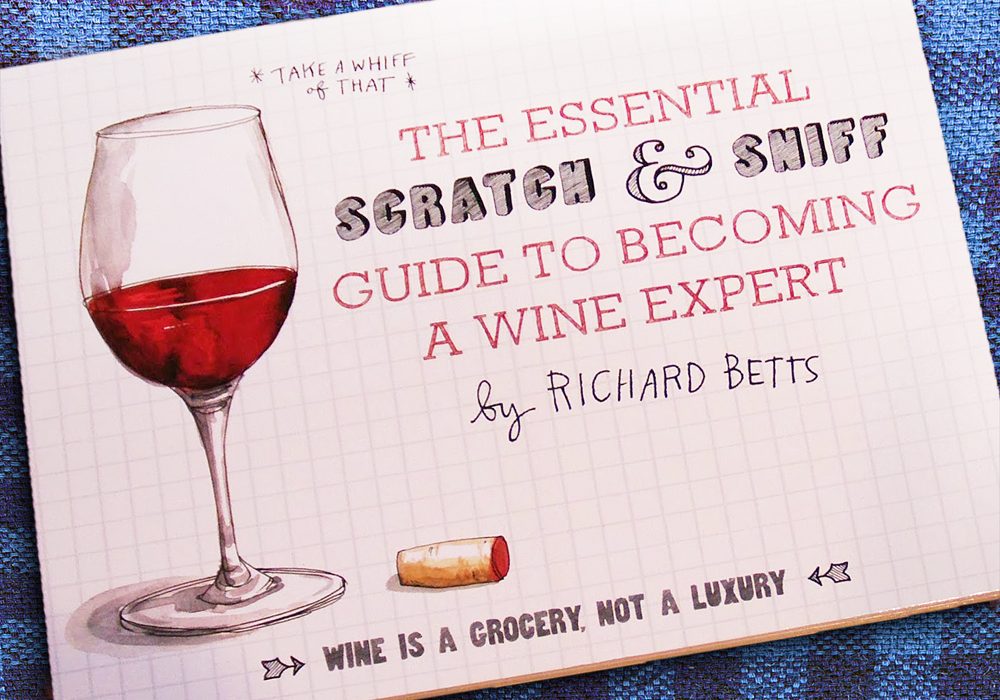 * TAKE A WHIFF
of THAT *
THE ESSENTIAL
SCRATCH & SNIFF
GUIDE TO BECOMING
A WINE EXPERT
by RICHARD BETTS
WINE IS A GROCERY, NOT A LUXURY